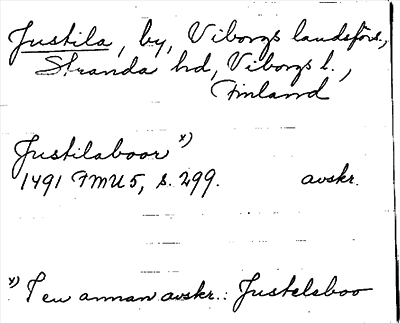 Justila, by, Viborgs landsförs.,
Stranda hd, Viborgs l.,
Finland
Justilaboor x)
1491 FMU 5, s. 299. avskr.
x) I en annan avskr.: Justelsboo